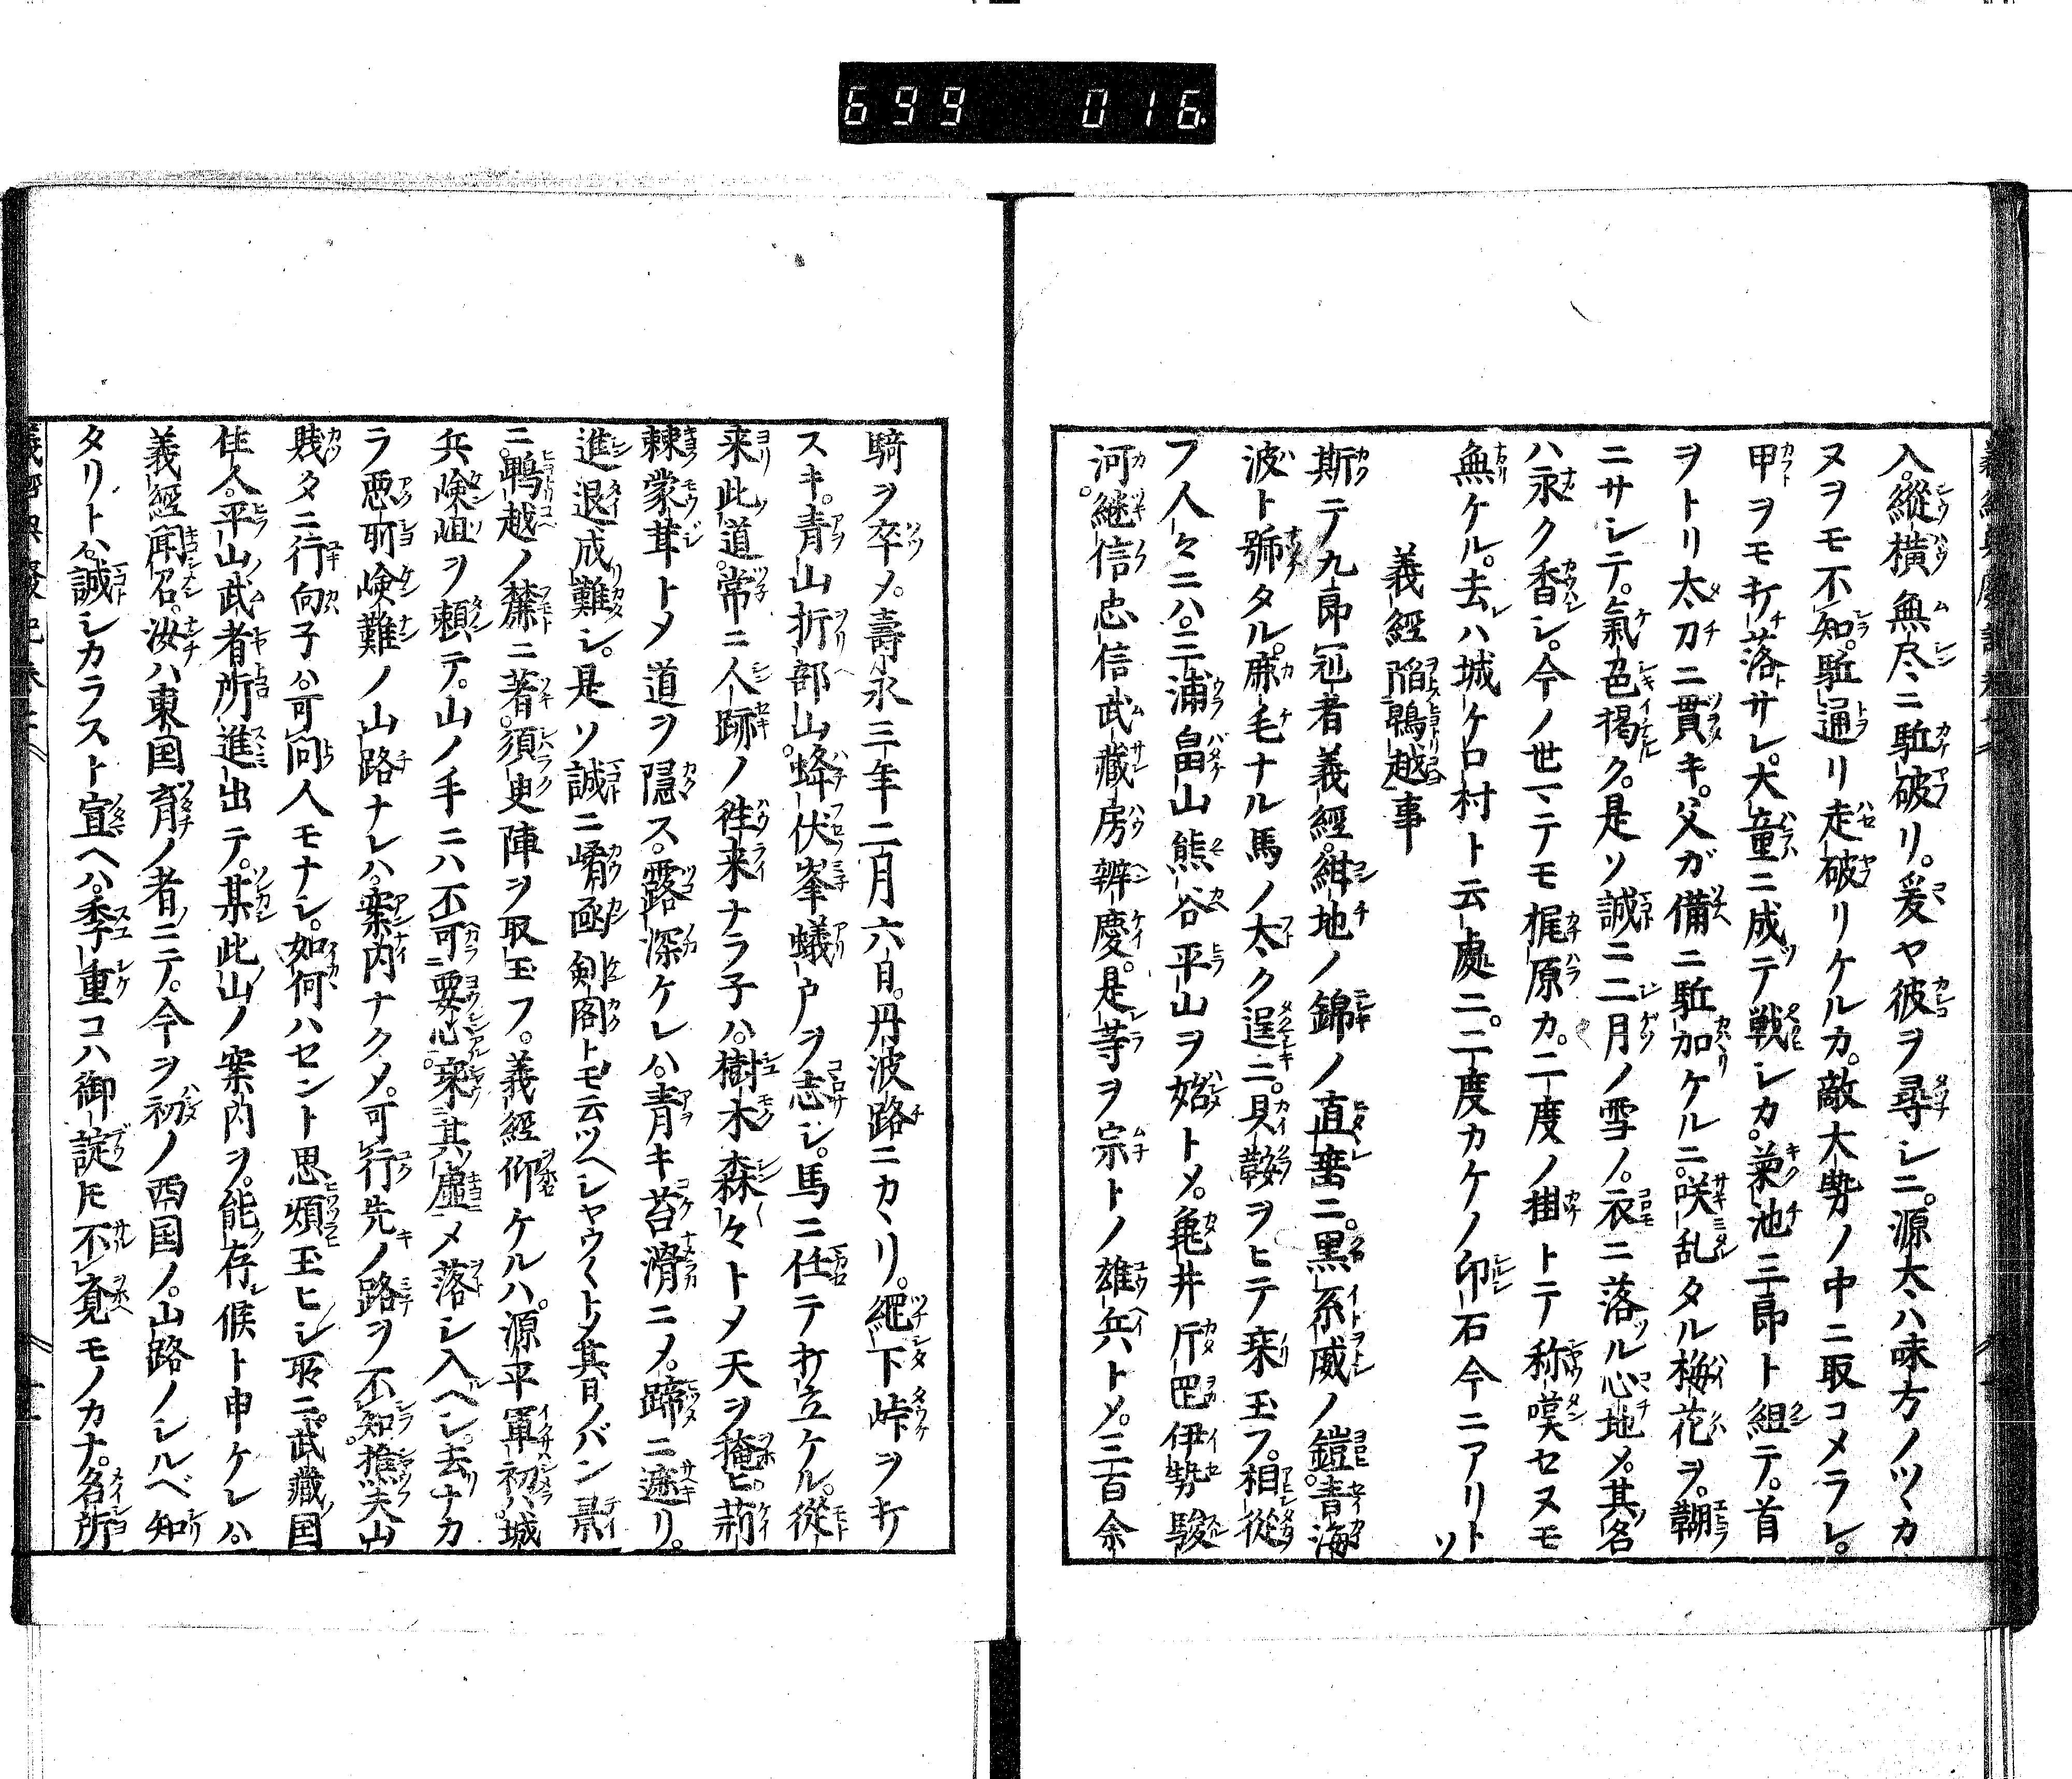 699 016
入。縦横無尽ニ駈破リ。爰ヤ彼ヲ尋シニ。源太ハ味方ノツヽカ
ヌヲモ不知。駈通リ走破リケルカ。敵大勢ノ中ニ取コメラレ。
甲ヲモ打落サレ。大童ニ成テ戦シカ。菊池三郎ト組テ。首
ヲトリ太刀ニ貫キ。父ガ備ニ駈加ケルニ。咲乱タル梅花ヲ。箙
ニサシテ。氣色掲ク。是ソ誠ニ二月ノ雪ノ。衣ニ落ル心地メ。其名
ハ永ク香シ。今ノ世マテモ梶原カ。二度ノ掛トテ称嘆セヌモ
無ケル。去ハ城ケ口村ト云處ニ。二度カケノ印石今ニアリトソ
義經陥鵯越事
斯テ九郎冠者義經。紺地ノ錦ノ直垂ニ。黒糸威ノ鎧。青海
波ト號タル。鹿毛ナル馬ノ太ク逞ニ。貝鞍ヲヒテ乗玉フ。相従
フ人々ニハ。三浦畠山熊谷平山ヲ始トメ。亀井片罡伊勢駿
河。継信忠信武蔵房辨慶。是等ヲ宗トノ雄兵トメ。三百余
騎ヲ卒メ。壽永三年二月六日。丹波路ニカヽリ。縄下峠ヲ打
スキ。青山折部山。蜂伏峯蟻戸ヲ志シ。馬ニ任テ打立ケル。従
来此道。常ニ人跡ノ往来ナラ子ハ。樹木森々トメ天ヲ掩ヒ。荊
棘蒙茸トメ道ヲ隠ス。露深ケレハ。青キ苔滑ニメ。蹄ニ遮リ。
進退成難シ。是ソ誠ニ崤函剣閣トモ云ツヘシ。ヤウ〱トメ其日ノバン景
ニ。鵯越ノ麓ニ著。須臾陣ヲ取玉フ。義經仰ケルハ。源平軍初ハ。城
兵嶮岨ヲ頼テ。山ノ手ニハ不可要心。乗其虚メ落シ入ベシ。去ナカ
ラ悪所嶮難ノ山路ナレハ。案内ナクメ。可行先ノ路ヲ不知。樵夫山
賎タニ行向子ハ。可問人モナシ。如何ハセント思煩玉ヒシ所ニ。武藏国
住人。平山武者所進出テ。某此山ノ案内ヲ。能存候ト申ケレハ。
義經聞召。汝ハ東国育ノ者ニテ。今ヲ初ノ西国ノ。山路ノシルベ知
タリトハ。誠シカラスト宣ヘハ。季重コハ御諚氏不覚モノカナ。名所